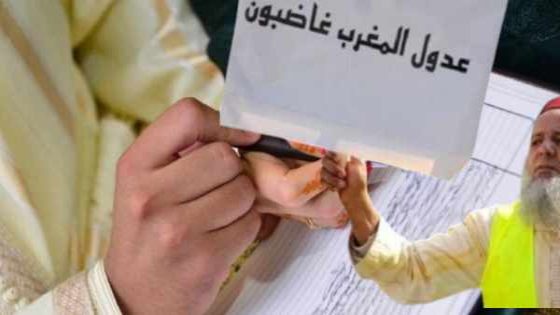 عدول المغرب غاضبون